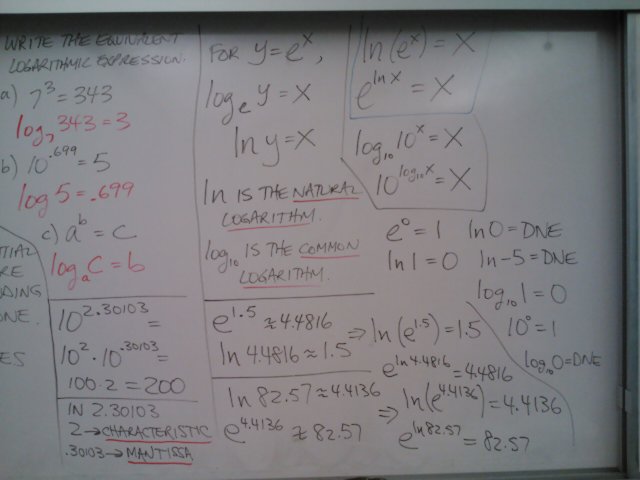 WRITE THE EQUIVALENT
LOGARITHMIC EXPRESSION.
a) 7³ = 343
log₇ 343 = 3
b) 10^.699 = 5
log 5 = .699
c) a^b = c
log_a C = b
TIAL
RE
DING
ONE.
ES
10^2.30103 =
10² · 10^.30103 =
100 · 2 = 200
IN 2.30103
2 → CHARACTERISTIC
.30103 → MANTISSA
FOR y = e^x,
log_e y = x
ln y = x
ln IS THE NATURAL
LOGARITHM.
log₁₀ IS THE COMMON
LOGARITHM.
e^1.5 ≈ 4.4816
ln 4.4816 ≈ 1.5
⇒ ln(e^1.5) = 1.5
e^ln 4.4816 = 4.4816
ln 82.57 ≈ 4.4136
e^4.4136 ≈ 82.57
⇒ ln(e^4.4136) = 4.4136
e^ln 82.57 = 82.57
ln(e^x) = x
e^ln x = x
log₁₀ 10^x = x
10^log₁₀x = x
e⁰ = 1 ln 0 = DNE
ln 1 = 0 ln -5 = DNE
log₁₀ 1 = 0
10⁰ = 1
log₁₀ 0 = DNE